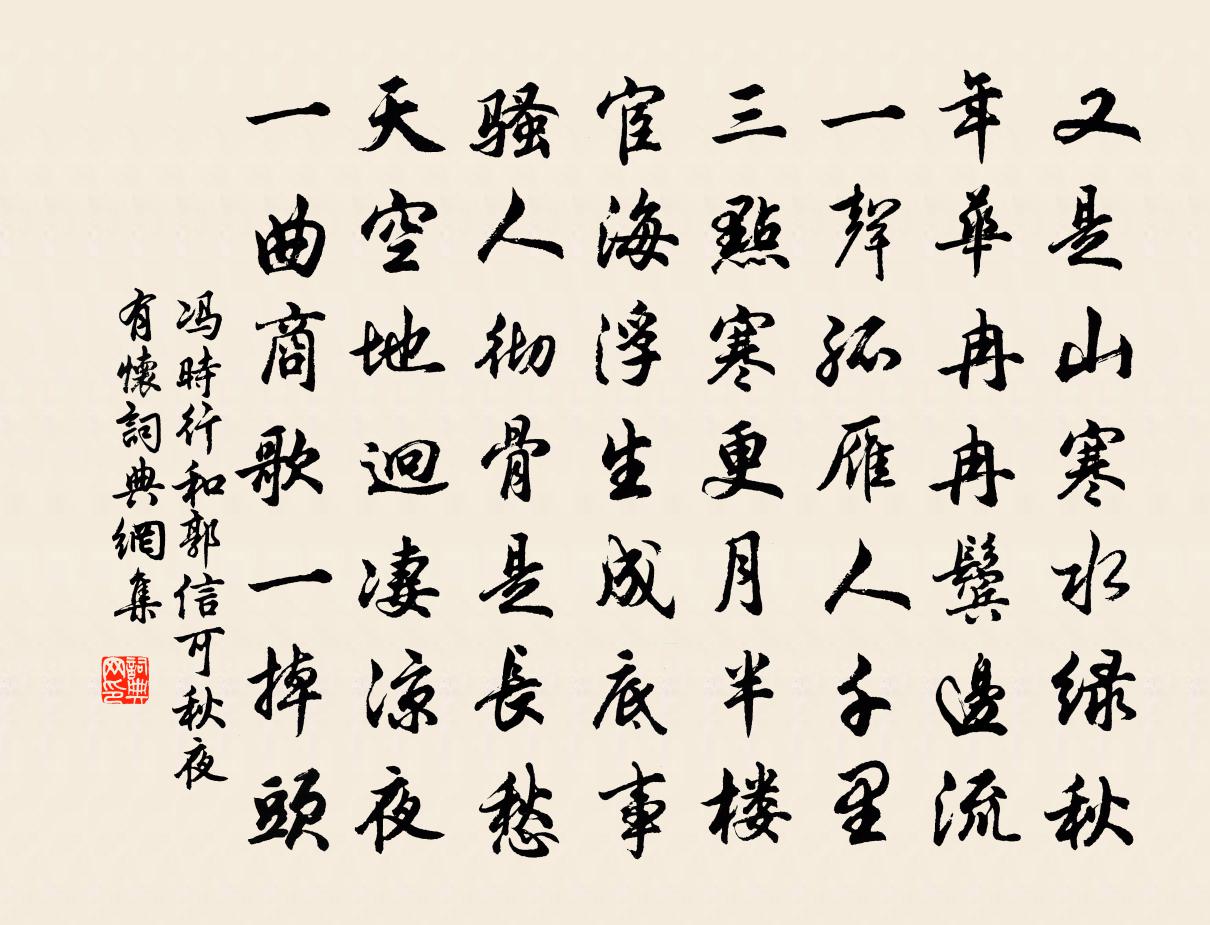 又是山寒水緑秋
年華冉冉鬓邊流
一聲孤雁人千里
三點寒更月半楼
宦海浮生成底事
騷人彻骨是長愁
天空地迥凄凉夜
一曲商歌一掉頭
冯時行和郭信可秋夜
有懷詞典網集
詞典网印